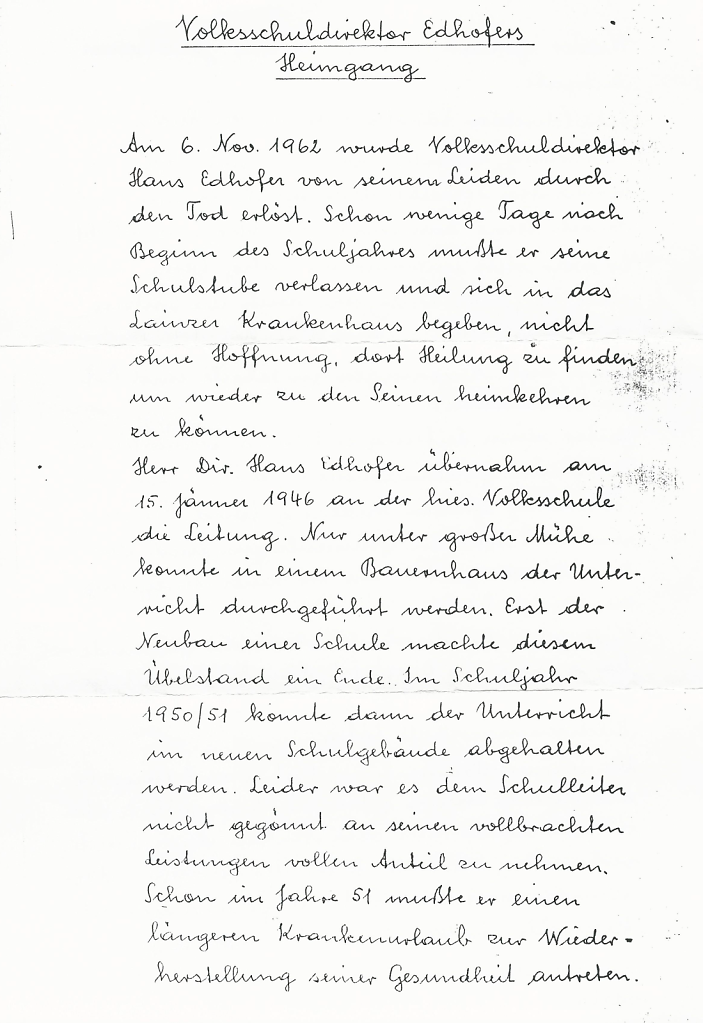 Volksschuldirektor Edhofers
Heimgang
Am 6. Nov. 1962 wurde Volksschuldirektor
Hans Edhofer von seinem Leiden durch
den Tod erlöst. Schon wenige Tage nach
Beginn des Schuljahres mußte er seine
Schulstube verlassen und sich in das
Lainzer Krankenhaus begeben, nicht
ohne Hoffnung, dort Heilung zu finden
um wieder zu den Seinen heimkehren
zu können.
Herr Dir. Hans Edhofer übernahm am
15. Jänner 1946 an der hies. Volksschule
die Leitung. Nur unter großer Mühe
konnte in einem Bauernhaus der Unter-
richt durchgeführt werden. Erst der
Neubau einer Schule machte diesem
Übelstand ein Ende. Im Schuljahr
1950/51 konnte dann der Unterricht
im neuen Schulgebäude abgehalten
werden. Leider war es dem Schulleiter
nicht gegönnt an seinen vollbrachten
Leistungen vollen Anteil zu nehmen.
Schon im Jahre 51 mußte er einen
längeren Krankenurlaub zur Wieder-
herstellung seiner Gesundheit antreten.